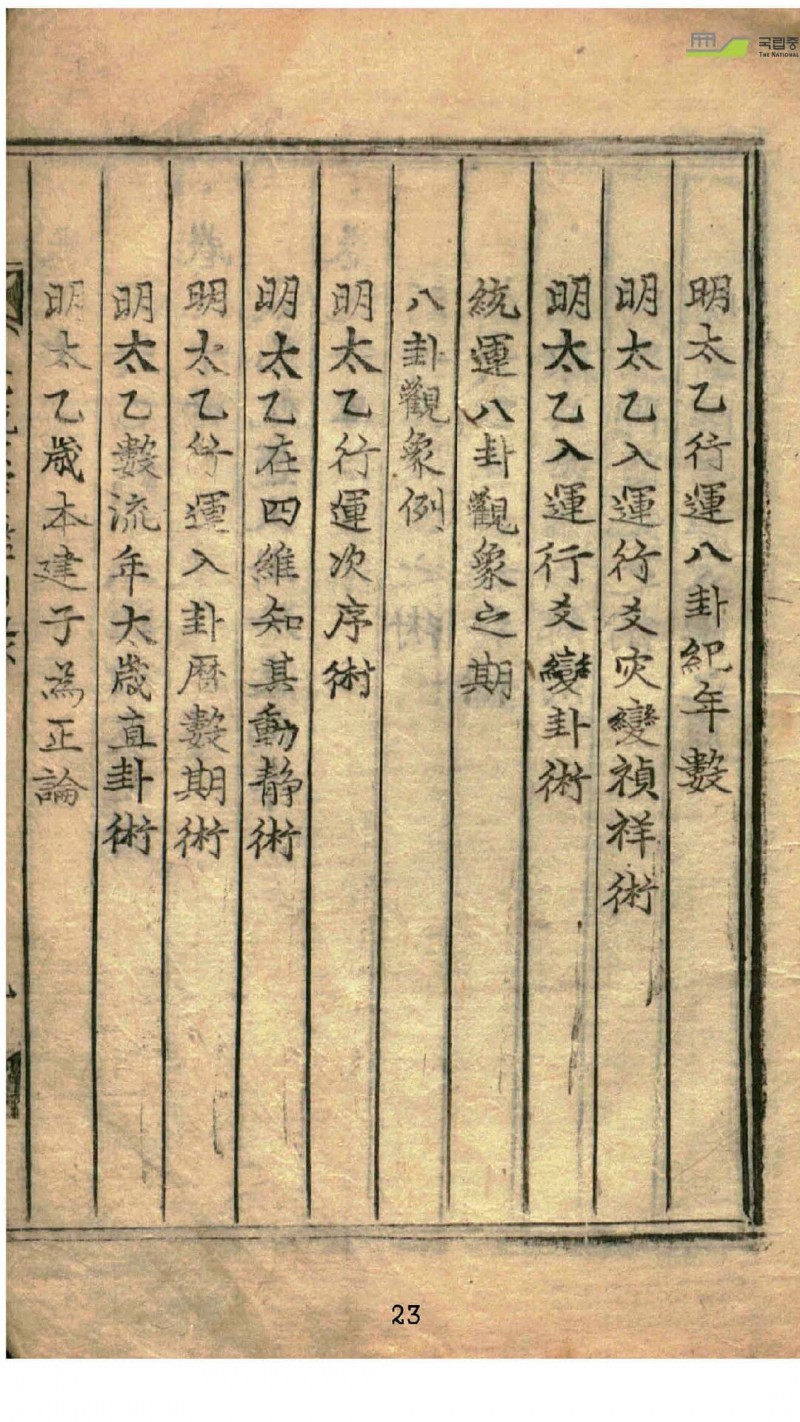 국립중
THE NATIONAL
明太乙行運八卦紀年數
明太乙入運行爻灾變禎祥術
明太乙入運行爻變卦術
統運八卦觀象之期
八卦觀象例
明太乙行運次序術
明太乙在四維知其動静術
明太乙行運入卦曆數期術
明太乙數流年太歲直卦術
明太乙歲本建子為正論
23